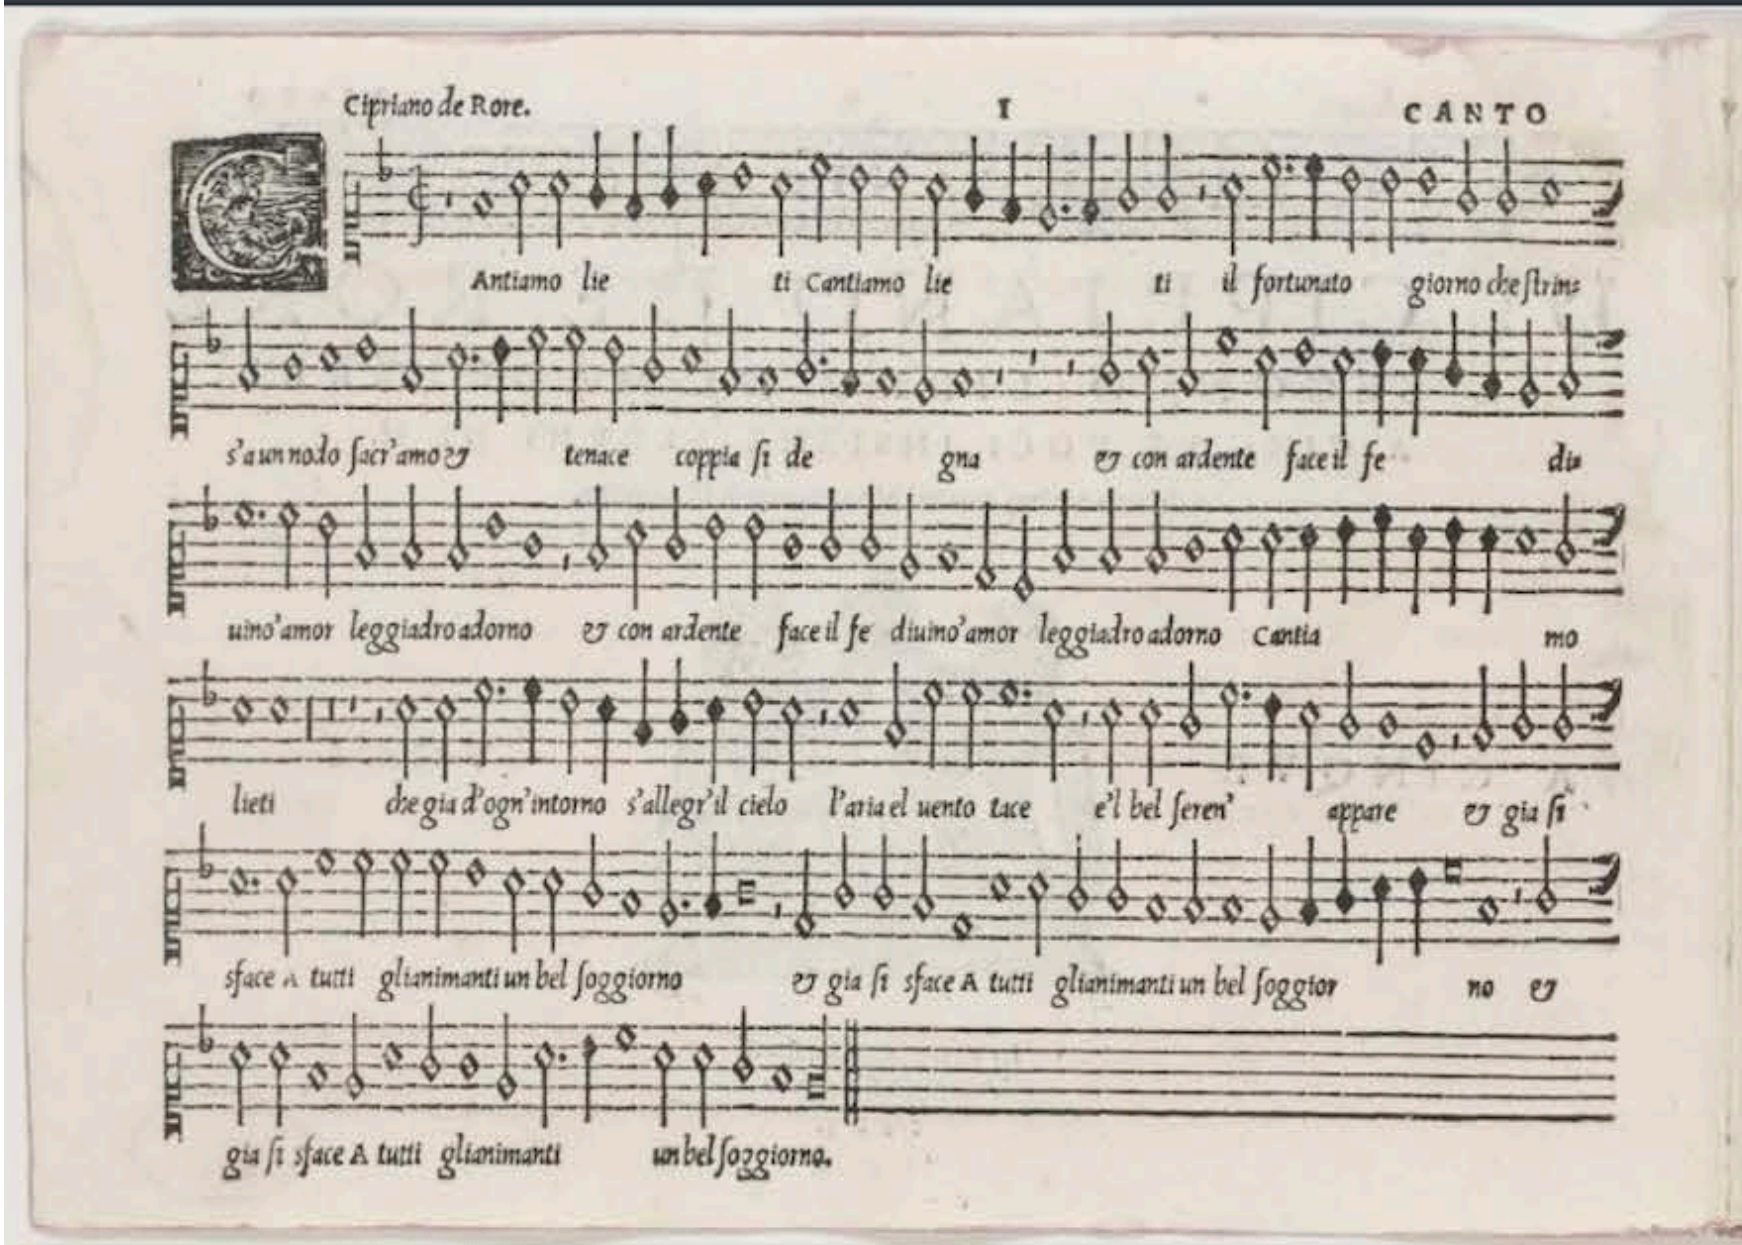 Cipriano de Rore. I CANTO
CAntiamo lie ti Cantiamo lie ti il fortunato giorno che ſtrin=
s'a un nodo ſacr'amo & tenace coppia ſi de gna & con ardente face il fe di=
uino'amor leggiadro adorno & con ardente face il fe diuino'amor leggiadro adorno Cantia mo
lieti che gia d'ogn'intorno s'allegr'il cielo l'aria el uento tace e'l bel ſeren' appare & gia ſi
sface A tutti gli animanti un bel ſoggiorno & gia ſi sface A tutti gli animanti un bel ſoggior no &
gia ſi sface A tutti gli animanti un bel ſoggiorno.